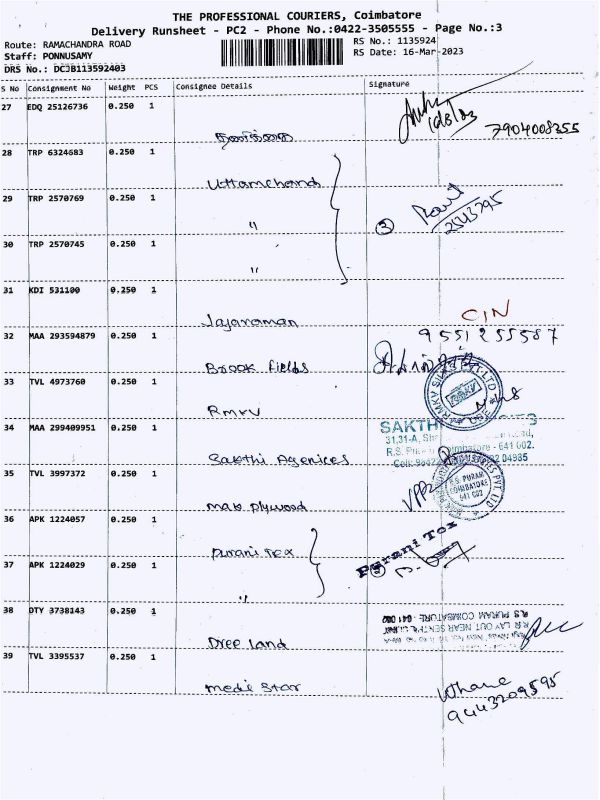 THE PROFESSIONAL COURIERS, Coimbatore
Delivery Runsheet - PC2 - Phone No.:0422-3505555 - Page No.:3
Route: RAMACHANDRA ROAD
RS No.: 1135924
Staff: PONNUSAMY
RS Date: 16-Mar-2023
DRS No.: DCJB113592403
S No Consignment No Weight PCS Consignee Details Signature
27 EDQ 25126736 0.250 1
7904008355
28 TRP 6324683 0.250 1
Uttamchand
29 TRP 2570769 0.250 1
"
3
2543795
30 TRP 2570745 0.250 1
"
31 KDI 531100 0.250 1
Jajaraman
CIN
32 MAA 293594879 0.250 1
9551255587
Brook fields
33 TVL 4973760 0.250 1
Rmkv
34 MAA 299409951 0.250 1
SAKTH
31,31-A,
641 002.
Sakthi Agenices
35 TVL 3997372 0.250 1
R.S. PURAM
COIMBATORE
641 002
mab plywood
36 APK 1224057 0.250 1
Purani Tex
Purani Tex
37 APK 1224029 0.250 1
"
38 OTY 3738143 0.250 1
R.S PURAM COIMBATORE
Dree land
39 TVL 3395537 0.250 1
medie star
9443209595